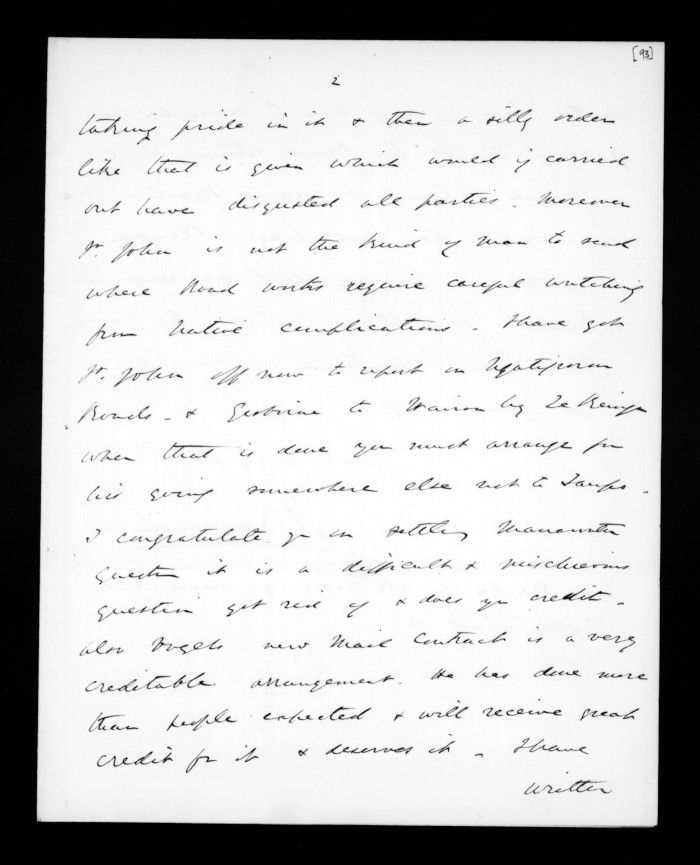 [93]
2
taking pride in it & then a silly order
like that is given which would if carried
out have disgusted all parties. Moreover
St. John is not the kind of man to send
where Road works require careful watching
from Native complications. I have got
St. John off now to report on Ngatiporou
Roads - & Gisborne to Wairoa by Te Reinga
when that is done you must arrange for
his going somewhere else not to Taupo.
I congratulate you on settling Manawatu
question it is a difficult & mischievous
question got rid of & does you credit.
also Vogels new Mail Contract is a very
creditable arrangement. He has done more
than people expected & will receive great
credit for it & deserves it - I have
written